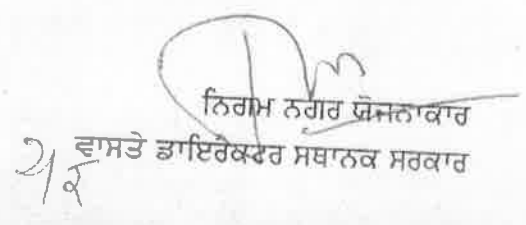 ਨਿਗਮ ਨਗਰ ਯੋਜਨਾਕਾਰ
ਵਾਸਤੇ ਡਾਇਰੈਕਟਰ ਸਥਾਨਕ ਸਰਕਾਰ